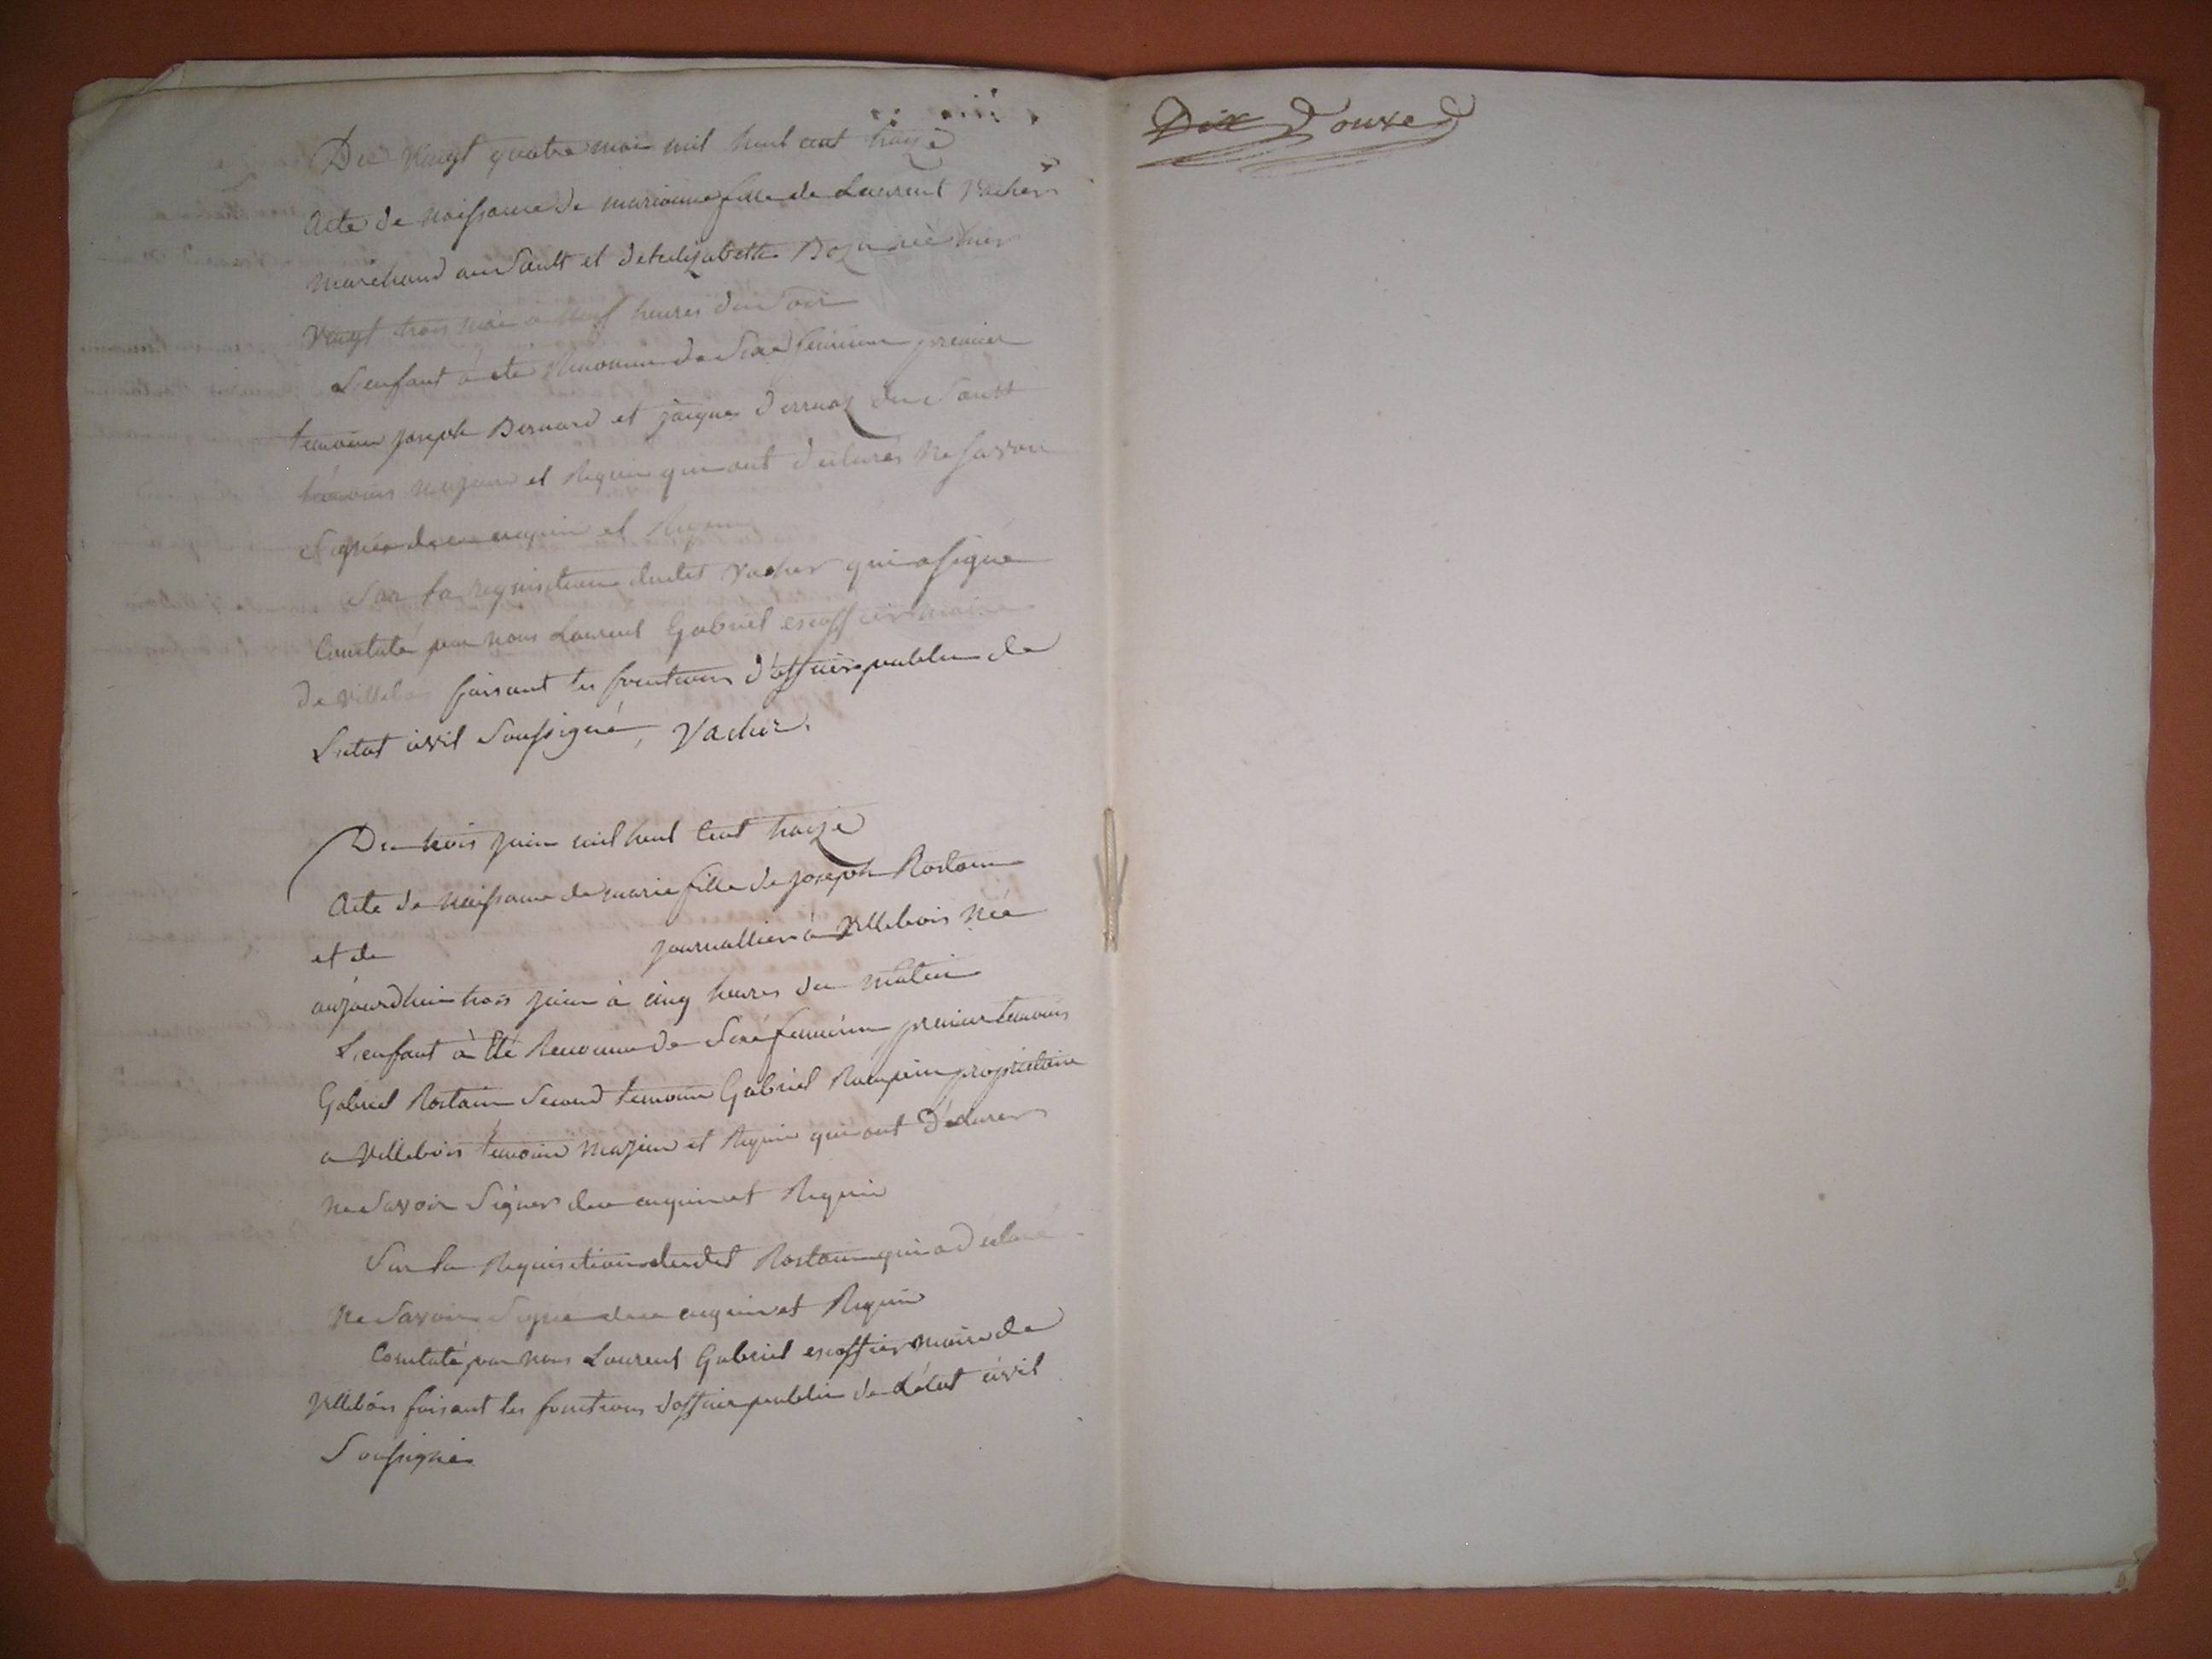 Du vingt quatre mai mil huit cent treize
acte de naissance de marianne fille de Laurent Vacher
marchand au Sault et de elizabeth Boza née hier
vingt trois mai a neuf heures du Soir
L'enfant à eté Reconnu de Sexe feminin premier
temoin joseph Bernard et jacques derruaz du Sault
témoins majeurs et Requis qui ont declarés ne savoir
Signer de ce enquis et Requis
Sur la requisition dudit Vacher qui a signé
Constaté par nous Laurent Gabriel escoffier maire
de Villebois faisant les fonctions d'officier public de
L'etat civil Soussigné, Vacher.
Du trois juin mil huit cent treize
Acte de naissance de marie fille de joseph Rostain
et de journallier à Villebois née
aujourdhui trois juin à cinq heures du matin
L'enfant à été Reconnu de Sexe feminin premier temoins
Gabriel Rostain Second temoin Gabriel propriétaire
a Villebois temoin majeur et Requis qui ont déclarer
ne Savoir Signer de ce enquis et Requis
Sur la Requisition dudit Rostain qui a déclaré
ne Savoir Signé de ce enquis et Requis
Constaté par nous Laurent Gabriel escoffier maire de
Villebois faisant les fonctions d'officier public de L'état civil
Soussigné
Dix Douze